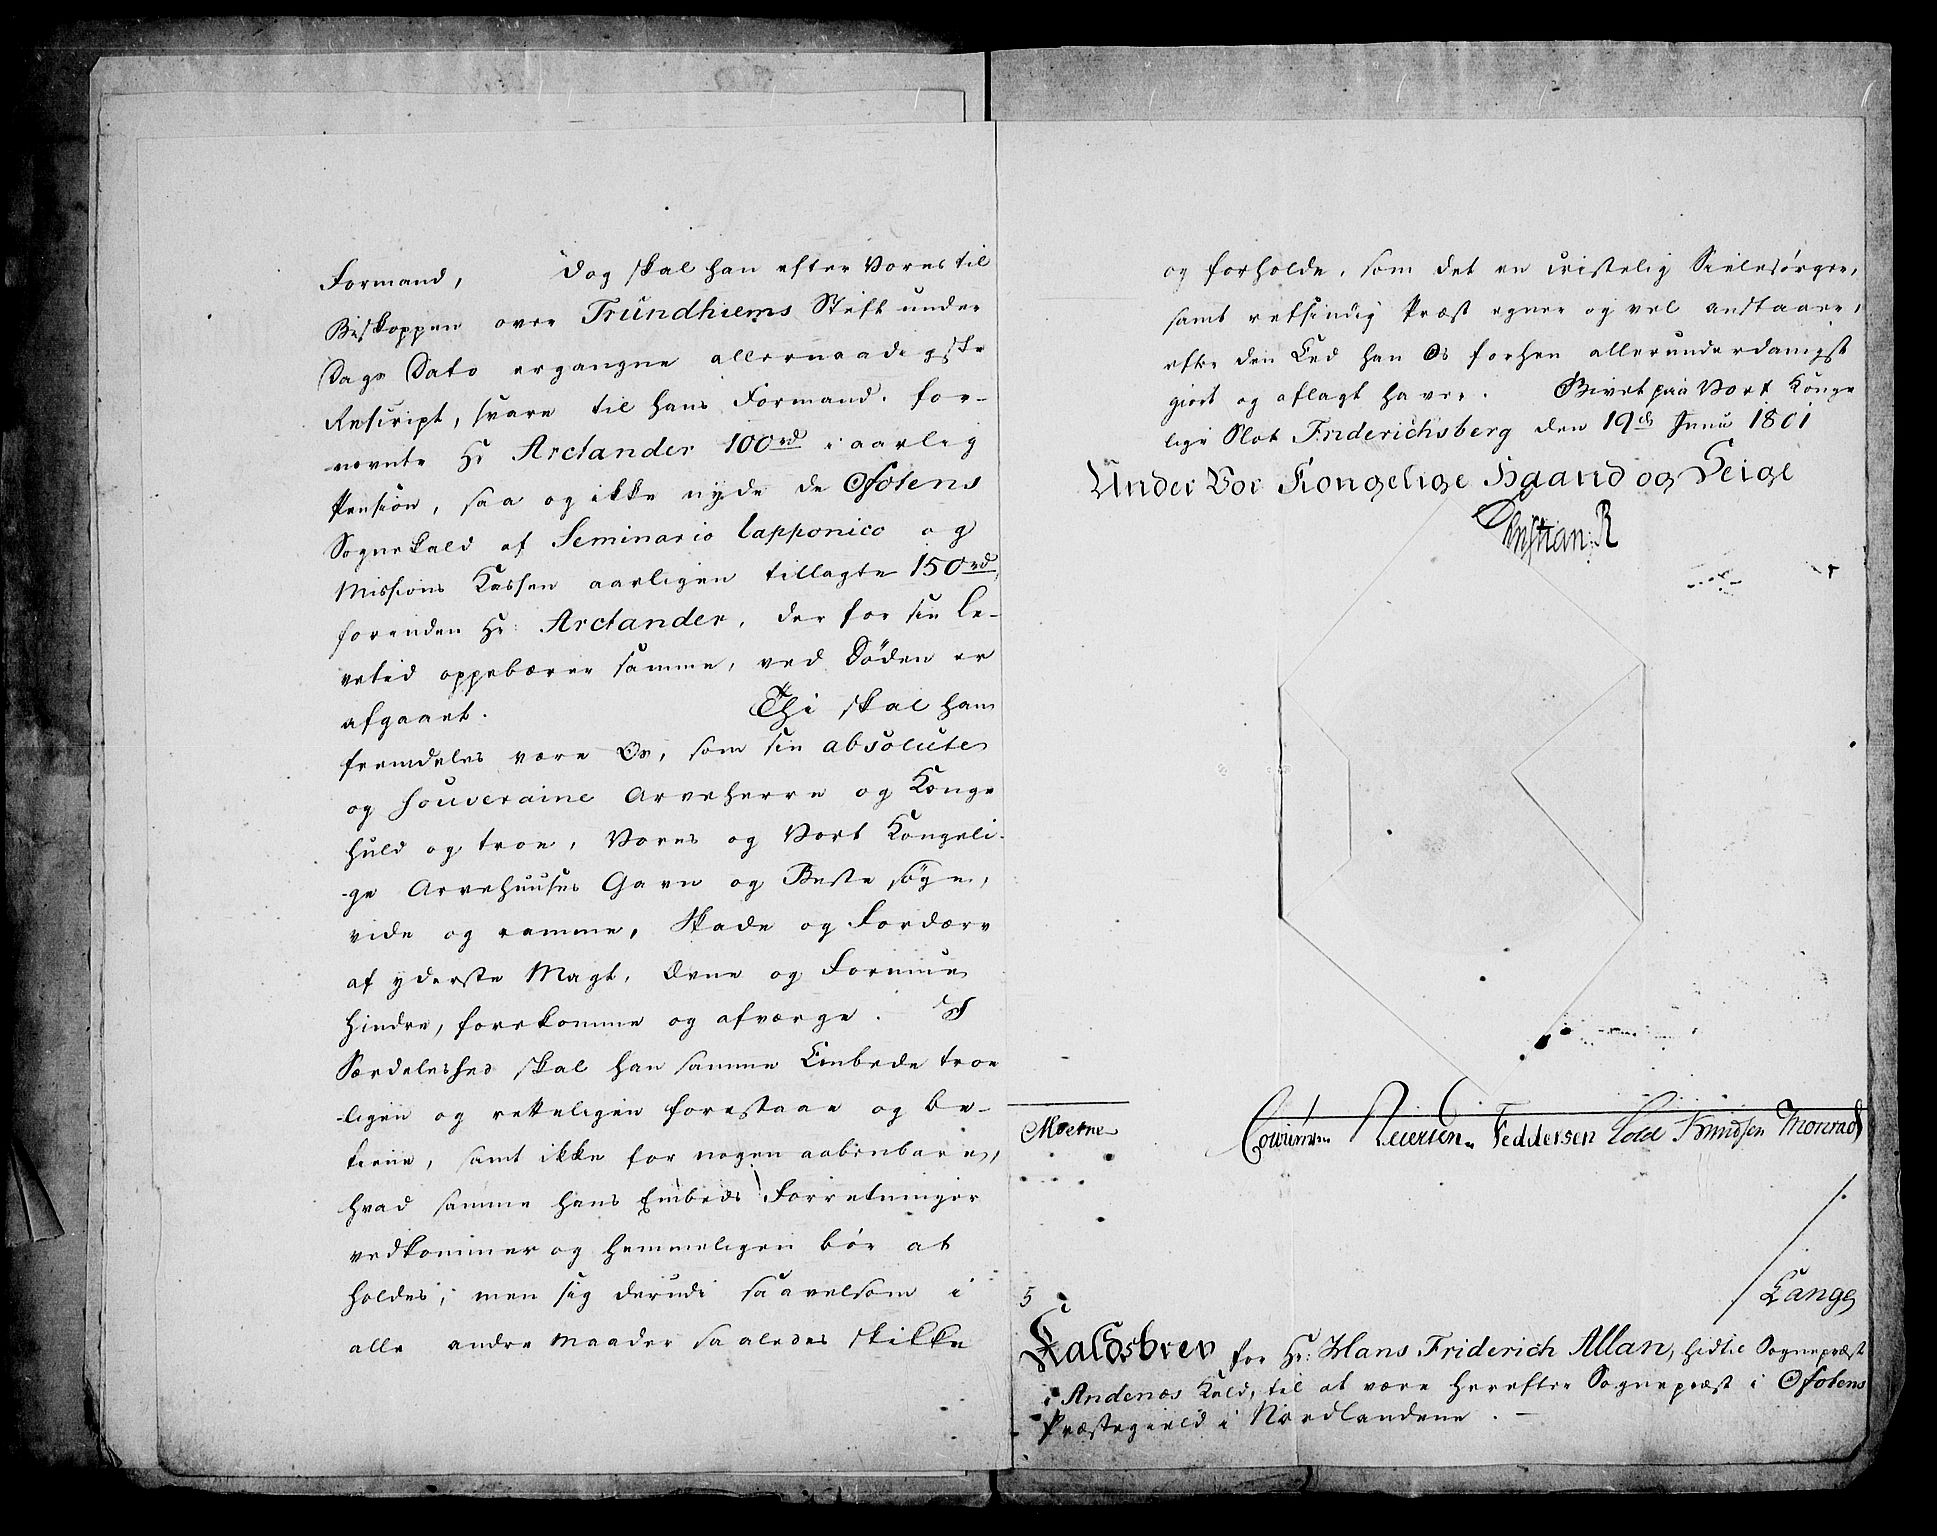 Formand, Dog skal han efter Vores til
Biskoppen over Trundhiems Stift under
Dags Dato ergangne allernaadigste
Rescript, svare til hans Formand, for-
nevnte Hr Arctander 100rd i aarlig
Pension, saa og ikke nyde de Ofotens
Sognekald af Seminario lapponico og
Missions Kassen aarligen tillagte 150rd,
forenden Hr: Arctander, der for sin Le-
vetid oppebærer samme, ved Døden er
afgaaet. Thi skal han
fremdeles være Os, som sin absolute
og souveraine Arveherre og Konge
huld og troe, Vores og Vort Kongeli-
-ge Arvehuuses Gavn og Beste søge,
vide og ramme, Skade og Fordærv
af yderste Magt, Evne og Formue
hindre, forekomme og afværge. I
Særdeleshed skal han samme Embede troe
-ligen og retteligen forestaae og be-
tiene, samt ikke for nogen aabenbare,
hvad samme hans Embeds Forretninger
vedkommer og hemmeligen bør at
holdes; men sig derudi saavelsom i
alle andre Maader saaledes skikke
og forholde, som det en cristelig Sielesørger,
samt retsindig Præst egner og vel anstaaer,
efter den Eed han Os forhen allerunderdanigst
giort og aflagt haver. Givet paa Vort Konge
lige Slot Friderichsberg den 19de Junii 1801
Under Vor Kongelige Haand og Seigl
Christian R
Moerne
Reiersen Feddersen Cold Knudsen Monrad
Lange
5
Kaldsbrev for Hr: Hans Friderich Allan, hidtil Sognepræst
i Andenæs Kald, til at være herefter Sognepræst i Ofotens
Præstegield i Nordlandene.